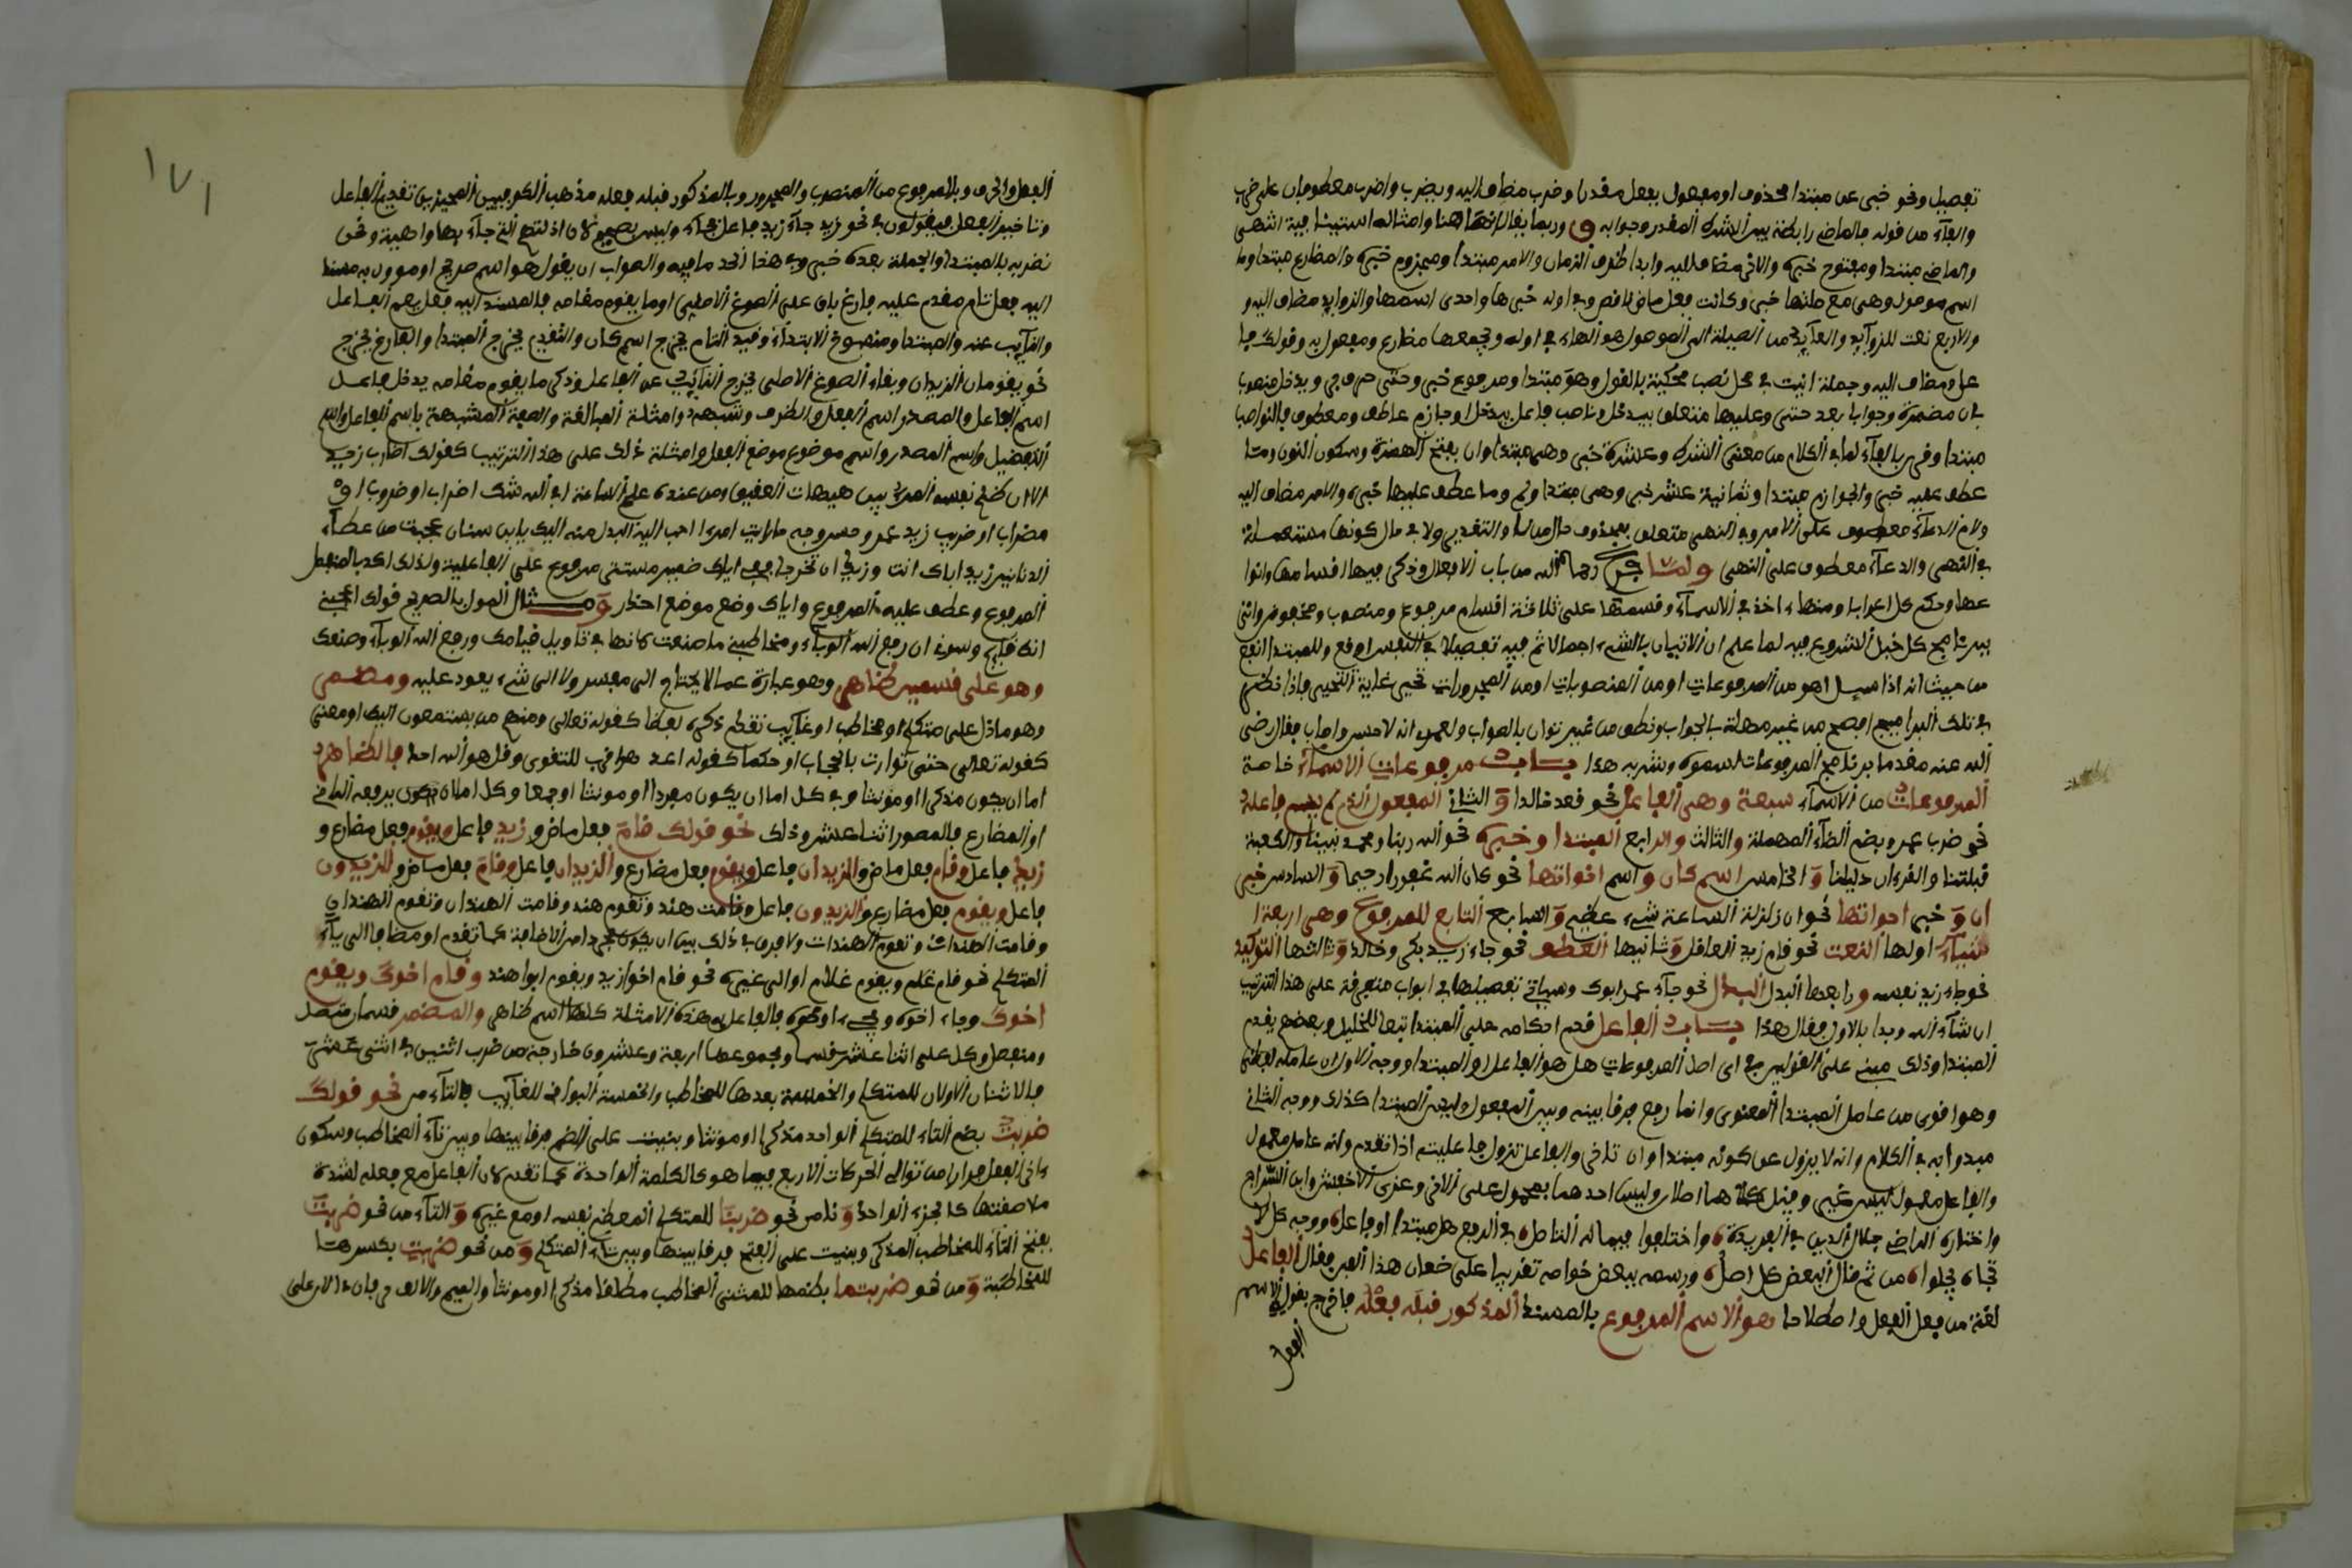 تفصيل ونحو خبر عن مبتدإ محذوف او مفعول بفعل مقدر وضرب مضاف اليه ويضرب واضرب معطوفان على ضرب
والفاء من قوله فالماضي رابطة بين الشرط المقدر وجوابه وربما يقال انها هنا وامثاله استينافية انتهى
والماضي مبتدا ومفتوح خبره والاخر مضاف اليه وابدا ظرف الزمان والامر مبتدا ومجزوم خبره والمضارع مبتدا وما
اسم موصول وهي مع صلتها خبر وكانت فعل ماض ناقص وفي اوله خبرها واحدى اسمها والزوايد مضاف اليه و
والاربع نعت للزوآيد والعآيد من الصلة الى الموصول هو الهاء في اوله ويجمعها مضارع ومفعول به وقولك فا
عل ومضاف اليه وجملة انيت في محل نصب محكية بالقول وهو مبتدا ومرفوع خبر وحتى حرف جر ويدخل منصوب
بان مضمرة وجوبا بعد حتى وعليها متعلق بيدخل وناصب فاعل يدخل او جازم عاطف ومعطوف فالنواصب
مبتدا وقرن بالفآء لما في الكلام من معنى الشرط وعشرة خبر وهي مبتدا وان بفتح الهمزة وسكون النون وما
عطف عليه خبر والجوازم مبتدا وثمانية عشر خبر وهي مبتدا ولم وما عطف عليها خبر والامر مضاف اليه
ولام الدعآء معطوف على الامر وفي النهي متعلق بمحذوف حال من لا والتقدير ولا في حال كونها مستعملة
في النهي والدعآء معطوف على النهي ولما فرغ رحمه الله من باب الافعال وذكر فيها اقسامها وانوا
عها وحكم كل اعرابا وبناء اخذ في الاسمآء وقسمها على ثلاثة اقسام مرفوع ومنصوب ومخفوض واتى
ببرنامج كل قبل الشروع فيه لما علم ان الاتيان بالشيء اجمالا ثم فيه تفصيلا في النفس اوقع وللمبتدا انفع
من حيث انه اذا سيل اهو من المرفوعات او من المنصوبات او من المجرورات تحير غاية التحير فاذا نظر
في تلك البرامج افصح من غير مهلة بالجواب ونطق من غير توان بالصواب ولعمري انه لاحسن واصاب فقال رضي
الله عنه مقدما برنامج المرفوعات لسموه وشربه هذا باب مرفوعات الاسمآء خاصة
المرفوعات من الاسمآء سبعة وهي الفاعل نحو قعد خالد و الثاني المفعول الذي لم يسم فاعله
نحو ضرب عمرو بضم الضآء المهملة والثالث والرابع المبتدا وخبره نحو الله ربنا ومحمد نبينا والكعبة
قبلتنا والقرءان دليلنا و الخامس اسم كان و اسم اخواتها نحو كان الله غفورا رحيما و السادس خبر
ان و خبر اخواتها نحو ان زلزلة الساعة شيء عظيم و السابع التابع للمرفوع وهي اربعة ا
شيآء اولها النعت نحو قام زيد العاقل و ثانيها العطف نحو جاء زيد بكر وخالد و ثالثها التوكيد
نحو جاء زيد نفسه و رابعها البدل البدل نحو جآء عمر ابوك وسياتي تفصيلها في ابواب متفرقة على هذا الترتيب
ان شآء الله وبدا بالاول فقال هذا باب الفاعل قدم احكامه على المبتدا تبعا للخليل وبعضهم يقدم
المبتدا وذلك مبني على القولين في اي اصل المرفوعات هل هو الفاعل او المبتدا ووجه الاول ان عامله لفظي
وهو اقوى من عامل المبتدا المعنوي وانما رفع فرقا بينه وبين المفعول وليس المبتدا كذلك ووجه الثاني
مبدوا به في الكلام وانه لا يزول عن كونه مبتدا وان تاخر والفاعل تزول فاعليته اذا تقدم وانه عامل معمول
والفاعل معمول ليس غير وقيل كلاهما اصلان وليس احدهما بمحمول على الاخر وعزي الاخفش وابن السراج
واختاره الرضي جلال الدين في الفريدة واختلفوا فيما له التاصل في الرفع هل مبتدا او فاعل ووجه كل لا
تجاه يجلواه من ثم قال البعض كل اصل ورسمه ببعض خواصه تقريبا على ضعاف هذا الفن فقال الفاعل
لغة من فعل الفعل واصطلاحا هو الاسم المرفوع بالمسند المذكور قبله فعله فاخرج بقوله الاسم
الفعل
١٧١
الفعل والحرف وبالمرفوع من المنصوب والمجرور وبالمذكور قبله فعله مذهب الكوفيين المجيزين تقديم الفاعل
وتاخير الفعل فيقولون في نحو زيد جآء زيد فاعل بجآء وليس بصحيح لان
نضربه بالمبتدا والجملة بعده خبر وفي هذا الحد ما فيه والصواب ان يقول هو اسم صريح او موول به مسند
اليه فعل تام مقدم عليه فارغ باق على الصوغ الاصلي او ما يقوم مقامه فالمسند اليه فعل يعم الفاعل
والنآيب عنه والمبتدا ومنسوخ الابتدآء وقيد التام يخرج اسم كان والتقديم يخرج المبتدا والفارغ يخرج
نحو يقومان الزيدان وبقاء الصوغ الاصلي يخرج النآئب عن الفاعل وذكر ما يقوم مقامه يدخل فاعل
اسم الفاعل والمصدر اسم الفعل والظرف وشبهه وامثلة المبالغة والصفة المشبهة باسم الفاعل واسم
التفضيل واسم المصدر واسم موضوع موضع الفعل وامثلة ذلك على هذا الترتيب كقولك اضارب زيد
الان نفسه المرء بين هيهات العقيق ومن عنده علم الساعة افي الله شك اضراب او ضروب او
مضراب او ضريب زيد عمرو حسن وجه ما رايت امرا احب اليه البذل منه اليك يا ابن سنان عجبت من عطآء
الدنانير زيد اياك انت وزيد ان تخرجا ففي اياك ضمير مستتر مرفوع على الفاعلية ولذلك اكد بالمنفصل
المرفوع وعطف عليه المرفوع واياك وضع موضع احذر ومثال الموول بالصريح قولك اعجبني
انك قايم وسرني ان رفع الله الوبآء ومخاطبني ما صنعت كانها في تاويل قيامك ورفع الله الوبآء وصنعك
وهو على قسمين ظاهر وهو عبارة عما لا يحتاج الى مفسر ولا الى شيء يعود عليه ومضمر
وهو ما دل على متكلم او مخاطب او غآيب تقدم ذكره لفظا كقوله تعالى ومنهم من يستمعون اليك او معنى
كقوله تعالى حتى توارت بالحجاب او حكما كقوله اعد هو اقرب للتقوى وقل هو الله احد فالظاهر
اما ان يكون مذكرا او مونثا وفي كل اما ان يكون مفردا او مونثا او جمعا وكل اما ان يكون يرفعه الماضي
او المضارع فالصور اثنا عشر وذلك نحو قولك قام فعل ماض و زيد فاعل ويقوم فعل مضارع و
زيد فاعل وقام فعل ماض والزيدان فاعل ويقوم فعل مضارع و الزيدان فاعل وقام فعل ماض و الزيدون
فاعل ويقوم فعل مضارع والزيدون فاعل وقامت هند وتقوم هند وقامت الهندان وتقوم الهندان
وقامت الهندات وتقوم الهندات ولا فرق في ذلك بين ان يكون مجردا من الاضافة كما تقدم او مضافا الى يآء
المتكلم نحو قام غلام ويقوم غلام او الى غيره نحو قام اخوا زيد ويقوم ابوا هند وقام اخوك ويقوم
اخوك وجاء اخوه ويجيء اخوه فالفاعل في هذه الامثلة كلها اسم ظاهر والمضمر قسمان متصل
ومنفصل وكل على اثنا عشر قسما ومجموعها اربعة وعشرون خارجة من ضرب اثنين في اثنى عشر
فالاثنان الاولان للمتكلم والخمسة بعدها للمخاطب والخمسة البواقي للغآيب فالتآء من نحو قولك
ضربت بضم التاء للمتكلم الواحد مذكرا او مونثا وبنيت على الضم فرقا بينها وبين تآء المخاطب وسكون
ءاخر الفعل فرارا من توالي الحركات الاربع فيما هو كالكلمة الواحدة كما تقدم لان الفاعل مع فعله لشدة
ملاصقتها كالجزء الواحد و نا من نحو ضربنا للمتكلم المعظم نفسه او مع غيره و التآء من نحو ضربت
بفتح التآء للمخاطب المذكر وبنيت على الفتح فرقا بينها وبين تاء المتكلم و من نحو ضربت بكسرها
للمخاطبة و من نحو ضربتما بضمها للمثنى المخاطب مطلقا مذكرا او مونثا والميم والالف حرفان دالان على